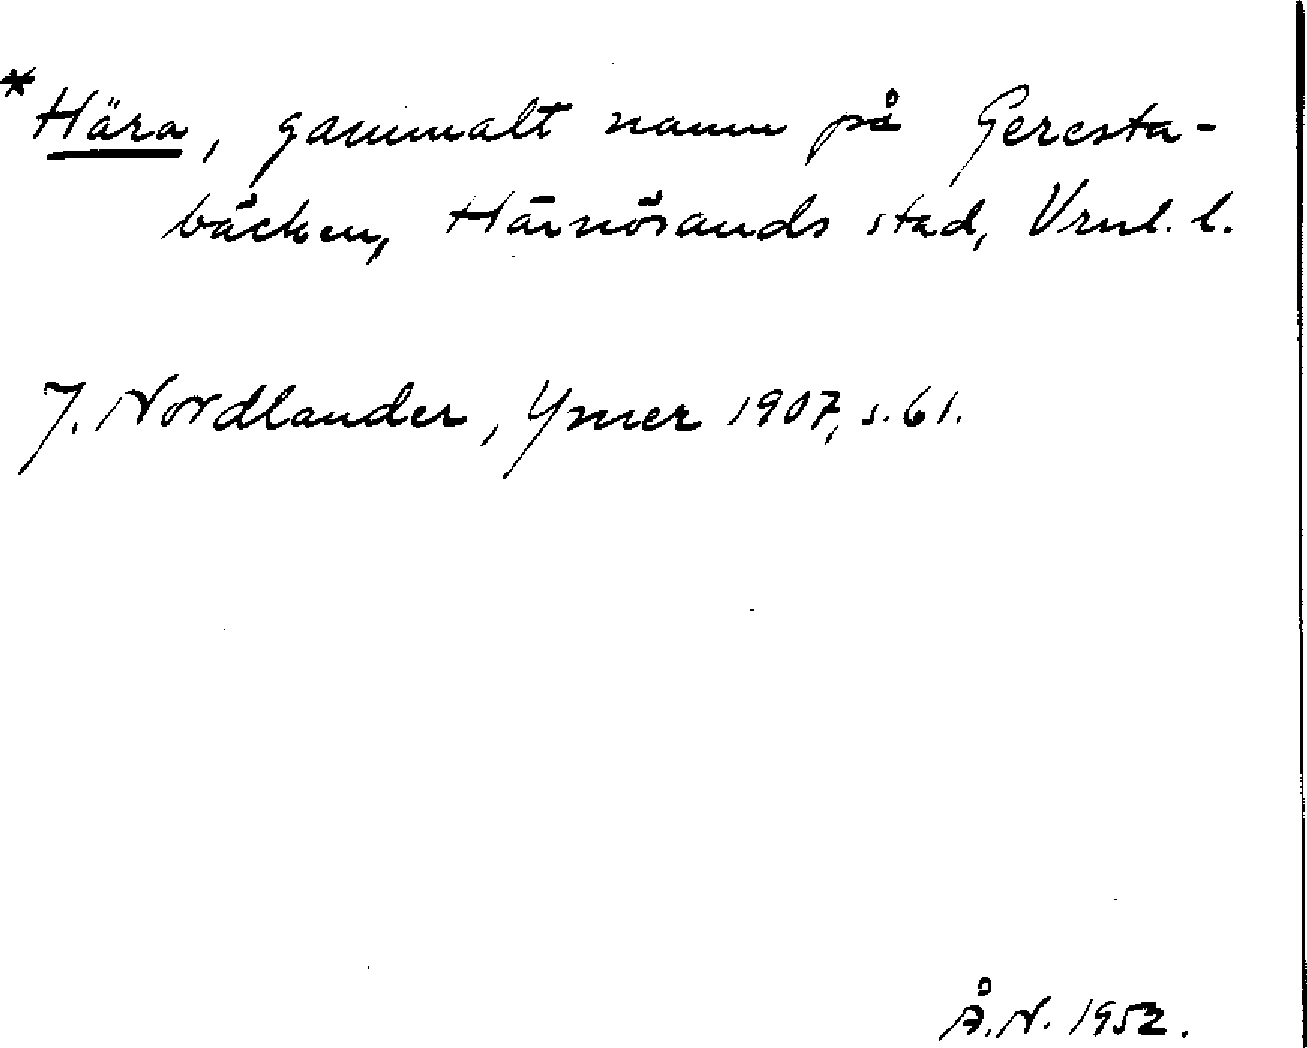 *Hära, gammalt namn på Geresta-
bäcken, Härnösands stad, Vrnl. l.
J. Nordlander, Ymer 1907, s. 61.
Å.N. 1952.